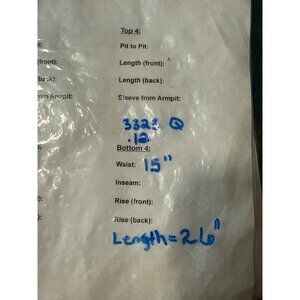 Top 4:
Pit to Pit:
(front): Length (front):
(back): Length (back):
Armpit: Sleeve from Armpit:
.12
Bottom 4:
Waist: 15"
Inseam:
Rise (front):
Rise (back):
Length = 26"